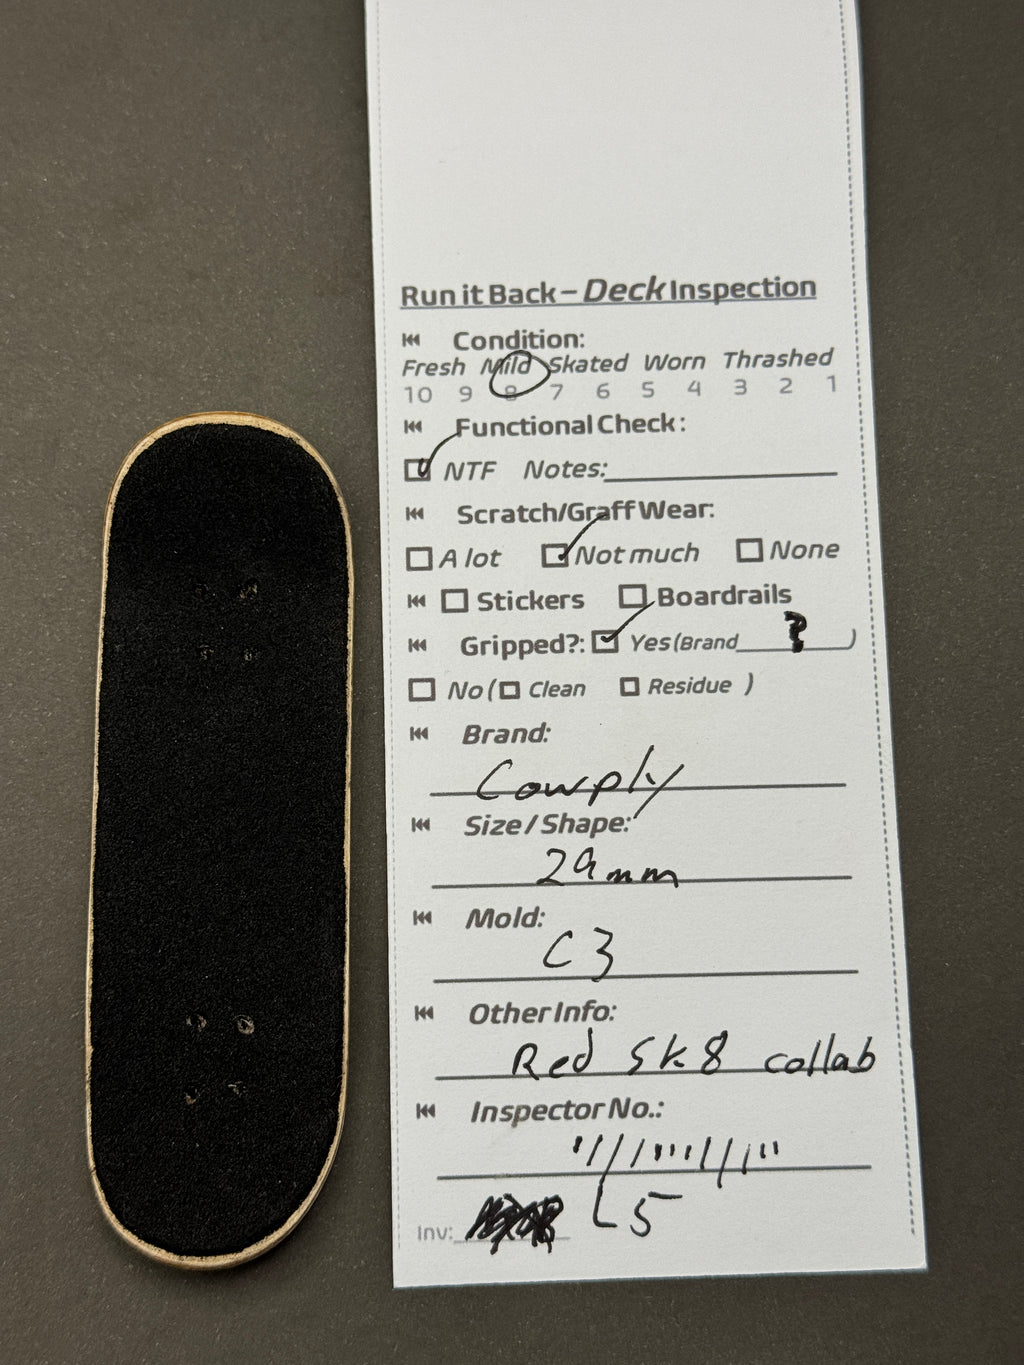 Run it Back – Deck Inspection
Condition:
Fresh Mild Skated Worn Thrashed
10 9 8 7 6 5 4 3 2 1
Functional Check:
NTF Notes:
Scratch/Graff Wear:
A lot Not much None
Stickers Boardrails
Gripped?: Yes (Brand ? )
No ( Clean Residue )
Brand:
Cowply
Size/Shape:
29mm
Mold:
C3
Other Info:
Red Sk8 collab
Inspector No.:
L5
Inv: